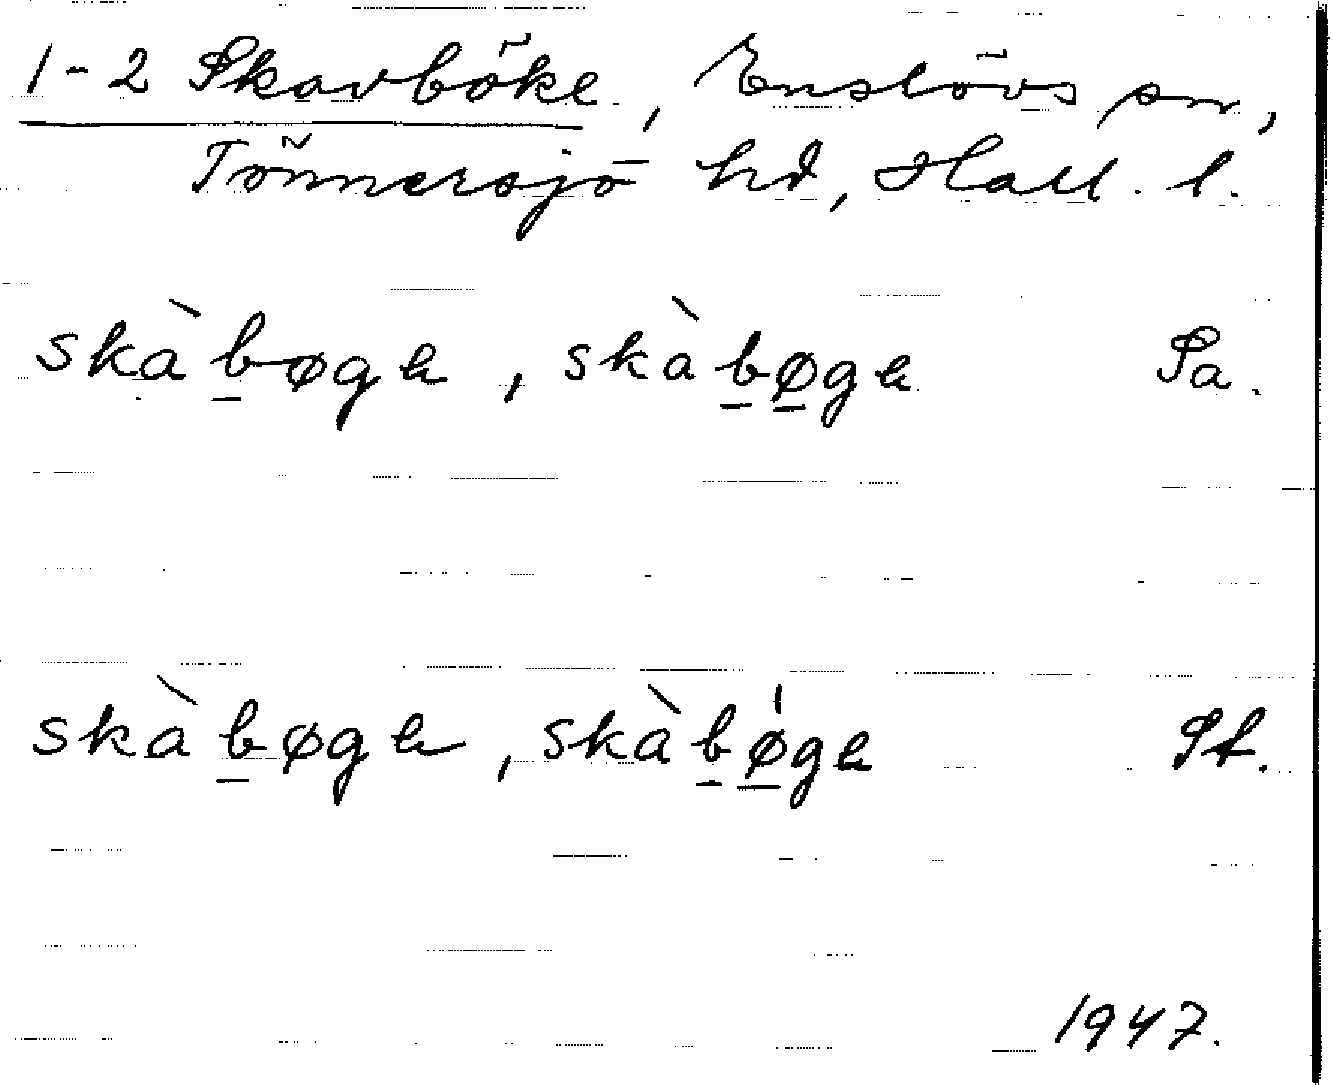 1-2 Skavböke, Enslövs sn,
Tönnersjö hd, Hall. l.
skàbøgə, skàbøgə Sa.
skàbøgə, skàbǿgə St.
1947.